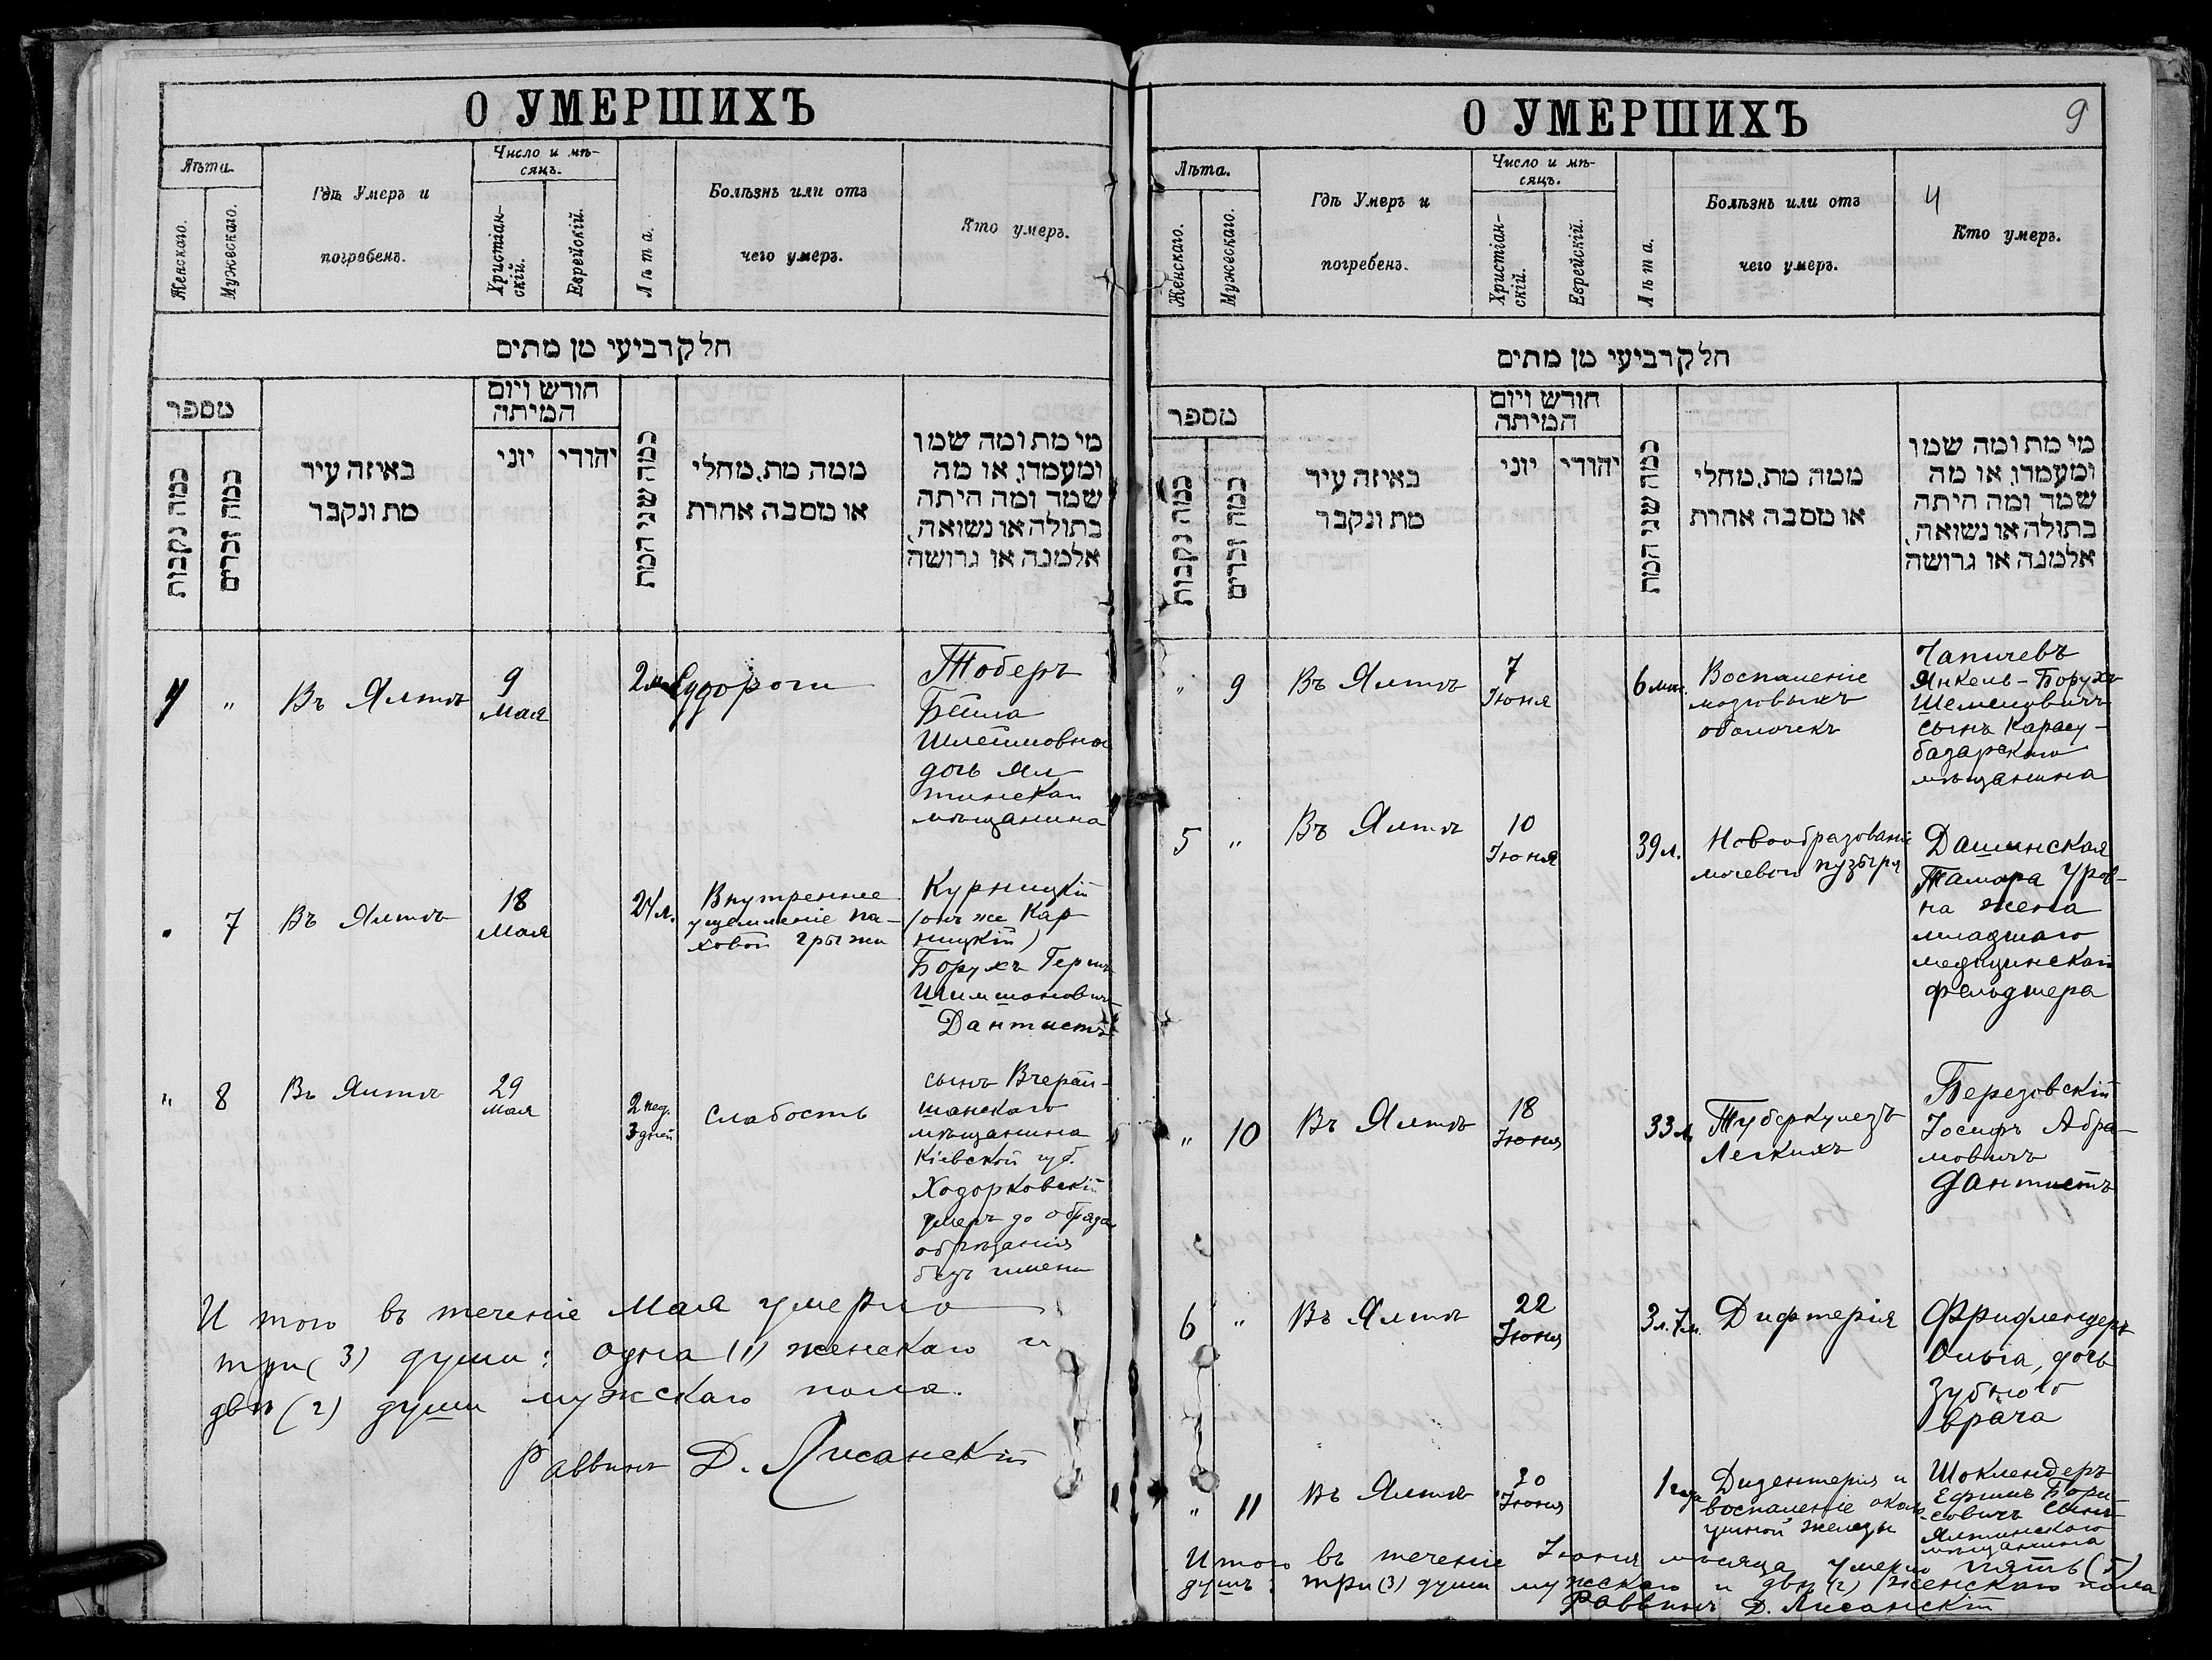 О УМЕРШИХЪ
Лѣта.
Женскаго.
Мужескаго.
Гдѣ Умеръ и
погребенъ.
Число и мѣ-
сяцъ.
Христіан-
скій.
Еврейскій.
Лѣта.
Болѣзнь или отъ
чего умеръ.
Кто умеръ.
חלק רביעי מן מתים
מספר
כמה נקבות
כמה זכרים
באיזה עיר
מת ונקבר
חודש ויום
המיתה
יוני
יהודי
כמה שני המת
ממה מת, מחלי
או מסבה אחרת
מי מת ומה שמו
ומעמדו, או מה
שמד ומה היתה
בתולה או נשואה,
אלמנה או גרושה
4 " Въ Ялтѣ
9
Мая
2
Судороги
Тоберъ
Бейла
Шлеймовна
дочь Ял
тинскаго
мѣщанина
7 Въ Ялтѣ
18
Мая
24 л.
Внутреннее
ущемленіе па-
ховой грыжи
Курницкій
(онъ же Кар
ницкій)
Борухъ Гершъ
Шимшоновичъ
Дантистъ
" 8 Въ Ялтѣ
29
мая
2 нед.
3 дней
Слабость
сынъ Вчерай-
шанскаго
мѣщанина
Кіевской губ.
Ходорковскій
умеръ до обряда
обрѣзанія
безъ имени
Итого въ теченіе Мая умерло
три (3) души: одна (1) женскаго и
двѣ (2) души мужскаго пола.
Раввинъ Д. Лисанскій
О УМЕРШИХЪ
9
Лѣта.
Женскаго.
Мужескаго.
Гдѣ Умеръ и
погребенъ.
Число и мѣ-
сяцъ.
Христіан-
скій.
Еврейскій.
Лѣта.
Болѣзнь или отъ
чего умеръ.
Ч
Кто умеръ.
חלק רביעי מן מתים
מספר
כמה נקבות
כמה זכרים
באיזה עיר
מת ונקבר
חודש ויום
המיתה
יוני
יהודי
כמה שני המת
ממה מת, מחלי
או מסבה אחרת
מי מת ומה שמו
ומעמדו, או מה
שמד ומה היתה
בתולה או נשואה,
אלמנה או גרושה
" 9 Въ Ялтѣ
7
Іюня
6 мѣс.
Воспаленіе
мозговыхъ
оболочекъ
Чапичевъ
Янкель-Борухъ
Шемелговичъ
сынъ Карасу-
базарскаго
мѣщанина
5 " Въ Ялтѣ
10
Іюня
39 л.
Новообразованіе
мочевого пузыря
Дашинская
Тамара Уров-
на жена
младшаго
медицинскаго
фельдшера
" 10 Въ Ялтѣ
18
Іюня
33 л.
Туберкулезъ
Легкихъ
Березовскій
Іосифъ Абра-
мовичъ
дантистъ
6 " Въ Ялтѣ
22
Іюня
3 л. 7 м.
Дифтерія
Фрифлендеръ
Ольга, дочь
Зубного
врача
" 11 Въ Ялтѣ
30
Іюня
1 года
Дизентерія и
воспаленіе около-
ушной железы
Шоклендеръ
Ефимъ Бори-
совичъ сынъ
Ялтинскаго
мѣщанина
Итого въ теченіе Іюня мѣсяца умерло пять (5)
душъ: три (3) души мужскаго и двѣ (2) женскаго пола
Раввинъ Д. Лисанскій